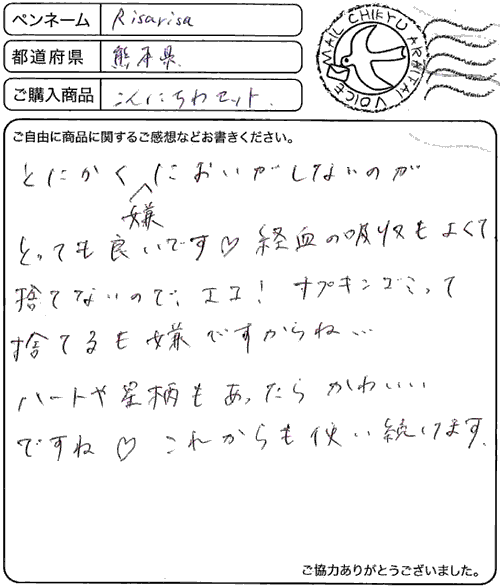 ペンネーム Risarisa
都道府県 熊本県.
ご購入商品 こんにちわセット.
MAIL CHIKYU ARAITAI VOICE
ご自由に商品に関するご感想などお書きください。
とにかく嫌においがしないのが
とっても良いです♡ 経血の吸収もよくて.
捨てないので、エコ! ナプキンゴミって
捨てるも嫌ですからね…
ハートや星柄もあったらかわいい
ですね♡ これからも使い続けます.
ご協力ありがとうございました。